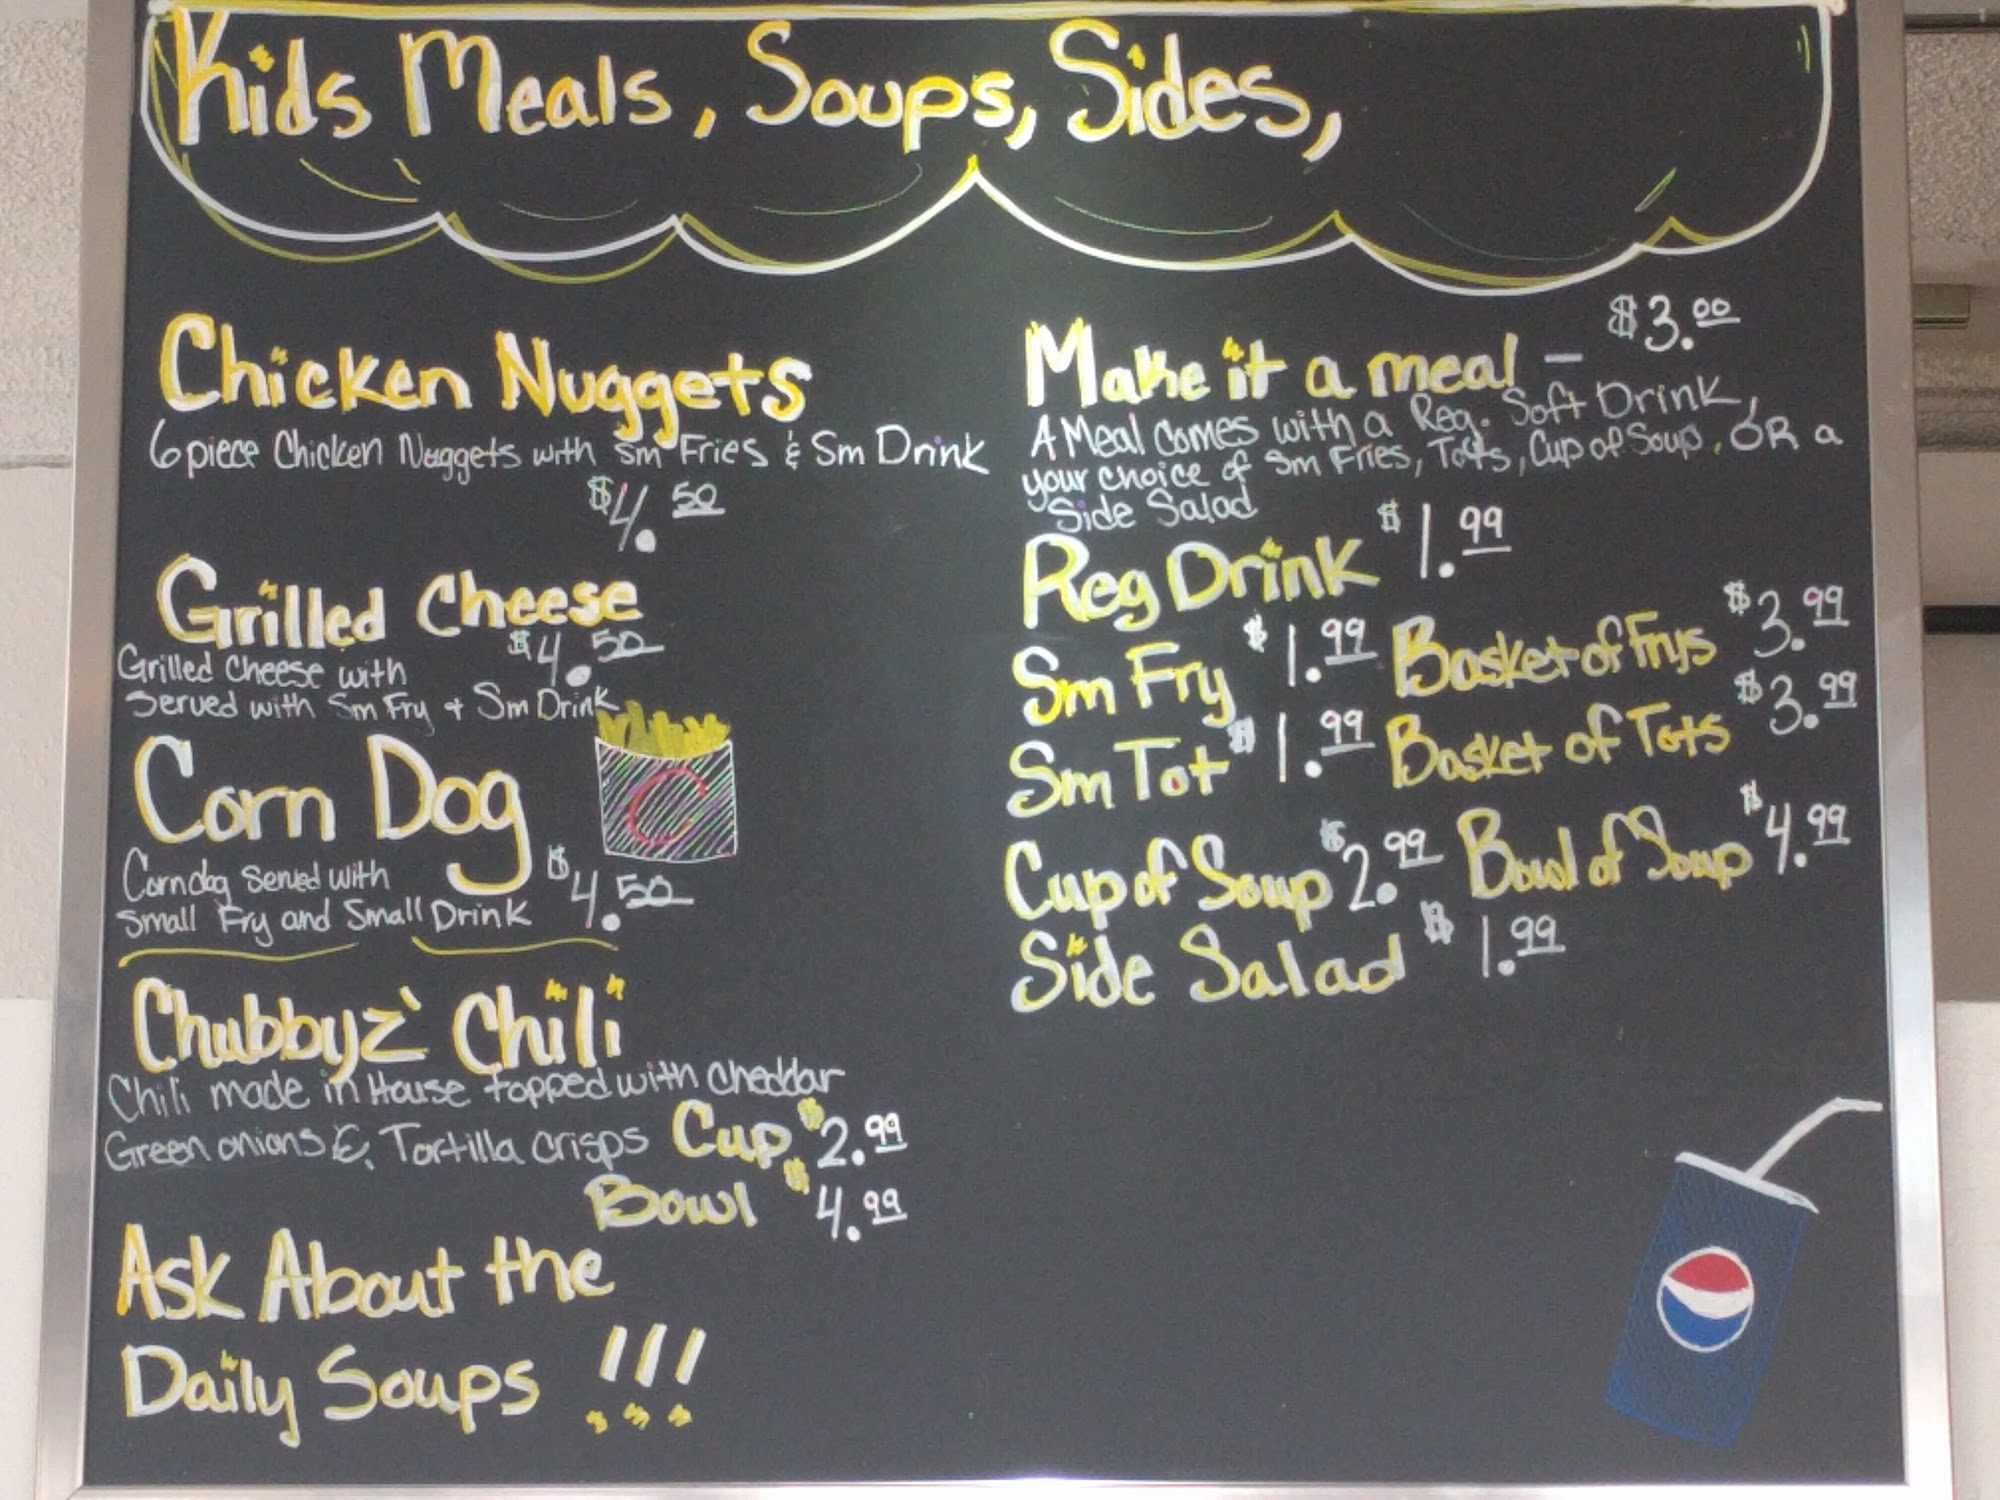 Kids Meals, Soups, Sides,
Chicken Nuggets
6 piece Chicken Nuggets with Sm Fries & Sm Drink
$4.50
Grilled Cheese
$4.50
Grilled Cheese with
Served with Sm Fry + Sm Drink
Corn Dog
C
Corndog Served with
Small Fry and Small Drink $4.50
Chubbyz' Chili
Chili made in House topped with Cheddar
Green onions & Tortilla crisps Cup $2.99
Bowl $4.99
Ask About the
Daily Soups !!!
Make it a meal - $3.00
A Meal Comes with a Reg. Soft Drink,
your choice of Sm Fries, Tots, Cup of Soup, OR a
Side Salad
Reg Drink $1.99
Sm Fry $1.99 Basket of Frys $3.99
Sm Tot $1.99 Basket of Tots $3.99
Cup of Soup $2.99 Bowl of Soup $4.99
Side Salad $1.99